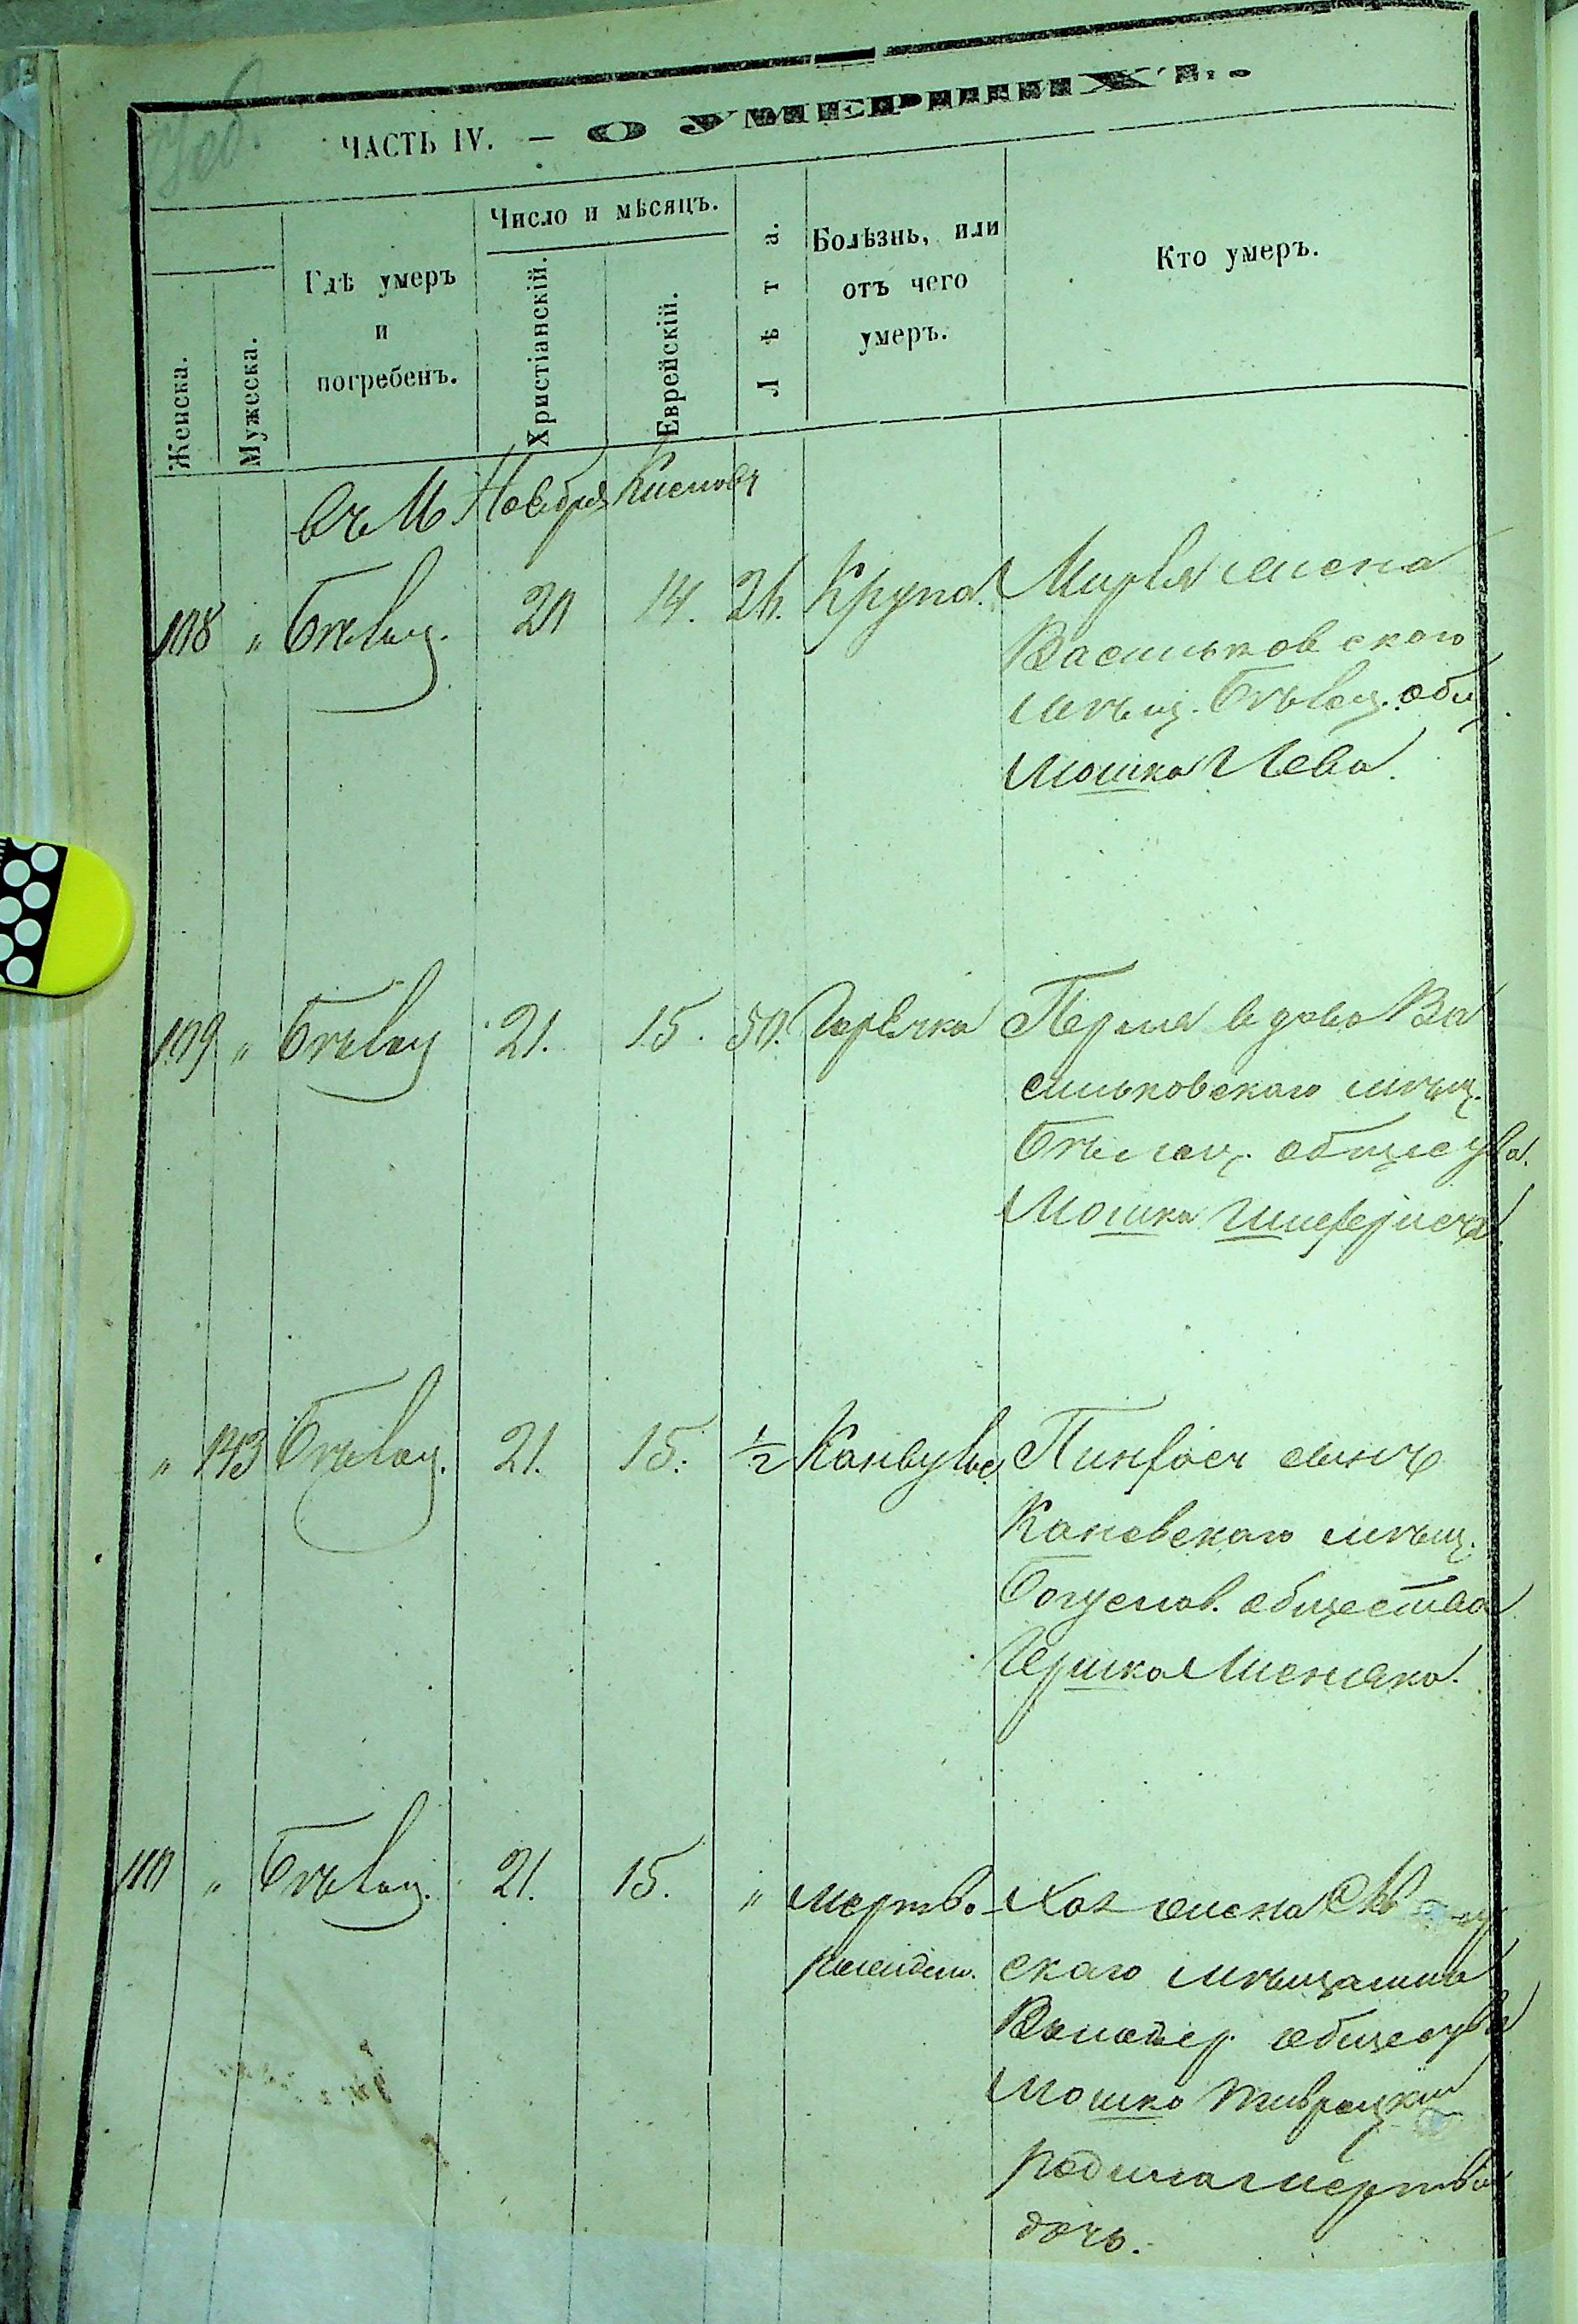 ЧАСТЬ IV. — О УМЕРШИХЪ.
Женска.
Мужеска.
Гдѣ умеръ
и
погребенъ.
Число и мѣсяцъ.
Христіанскій.
Еврейскій.
Лѣта.
Болѣзнь, или
отъ чего
умеръ.
Кто умеръ.
въ М Ноября Кислевъ
108 " Бѣлоц. 20 14. 26. Крупа. Мирля жена
Васильковского
мѣщ. Бѣлоц. общ.
Мошка Лева.
109 " Бѣлоц 21. 15. 50. Горячка Перля вдова Ва
сильковскаго мѣщ.
Бѣлоц. общества.
Мошка
" 143 Бѣлоц. 21. 15. 1/2 Канвульс Пинхосъ сынъ
Каневскаго мѣщ.
Богуслов. общества
Гершка
110 " Бѣлоц. 21. 15. " мертво- Хая жена
рожден. скаго мѣщанина
общества
Мошко
родила мертву
дочь.